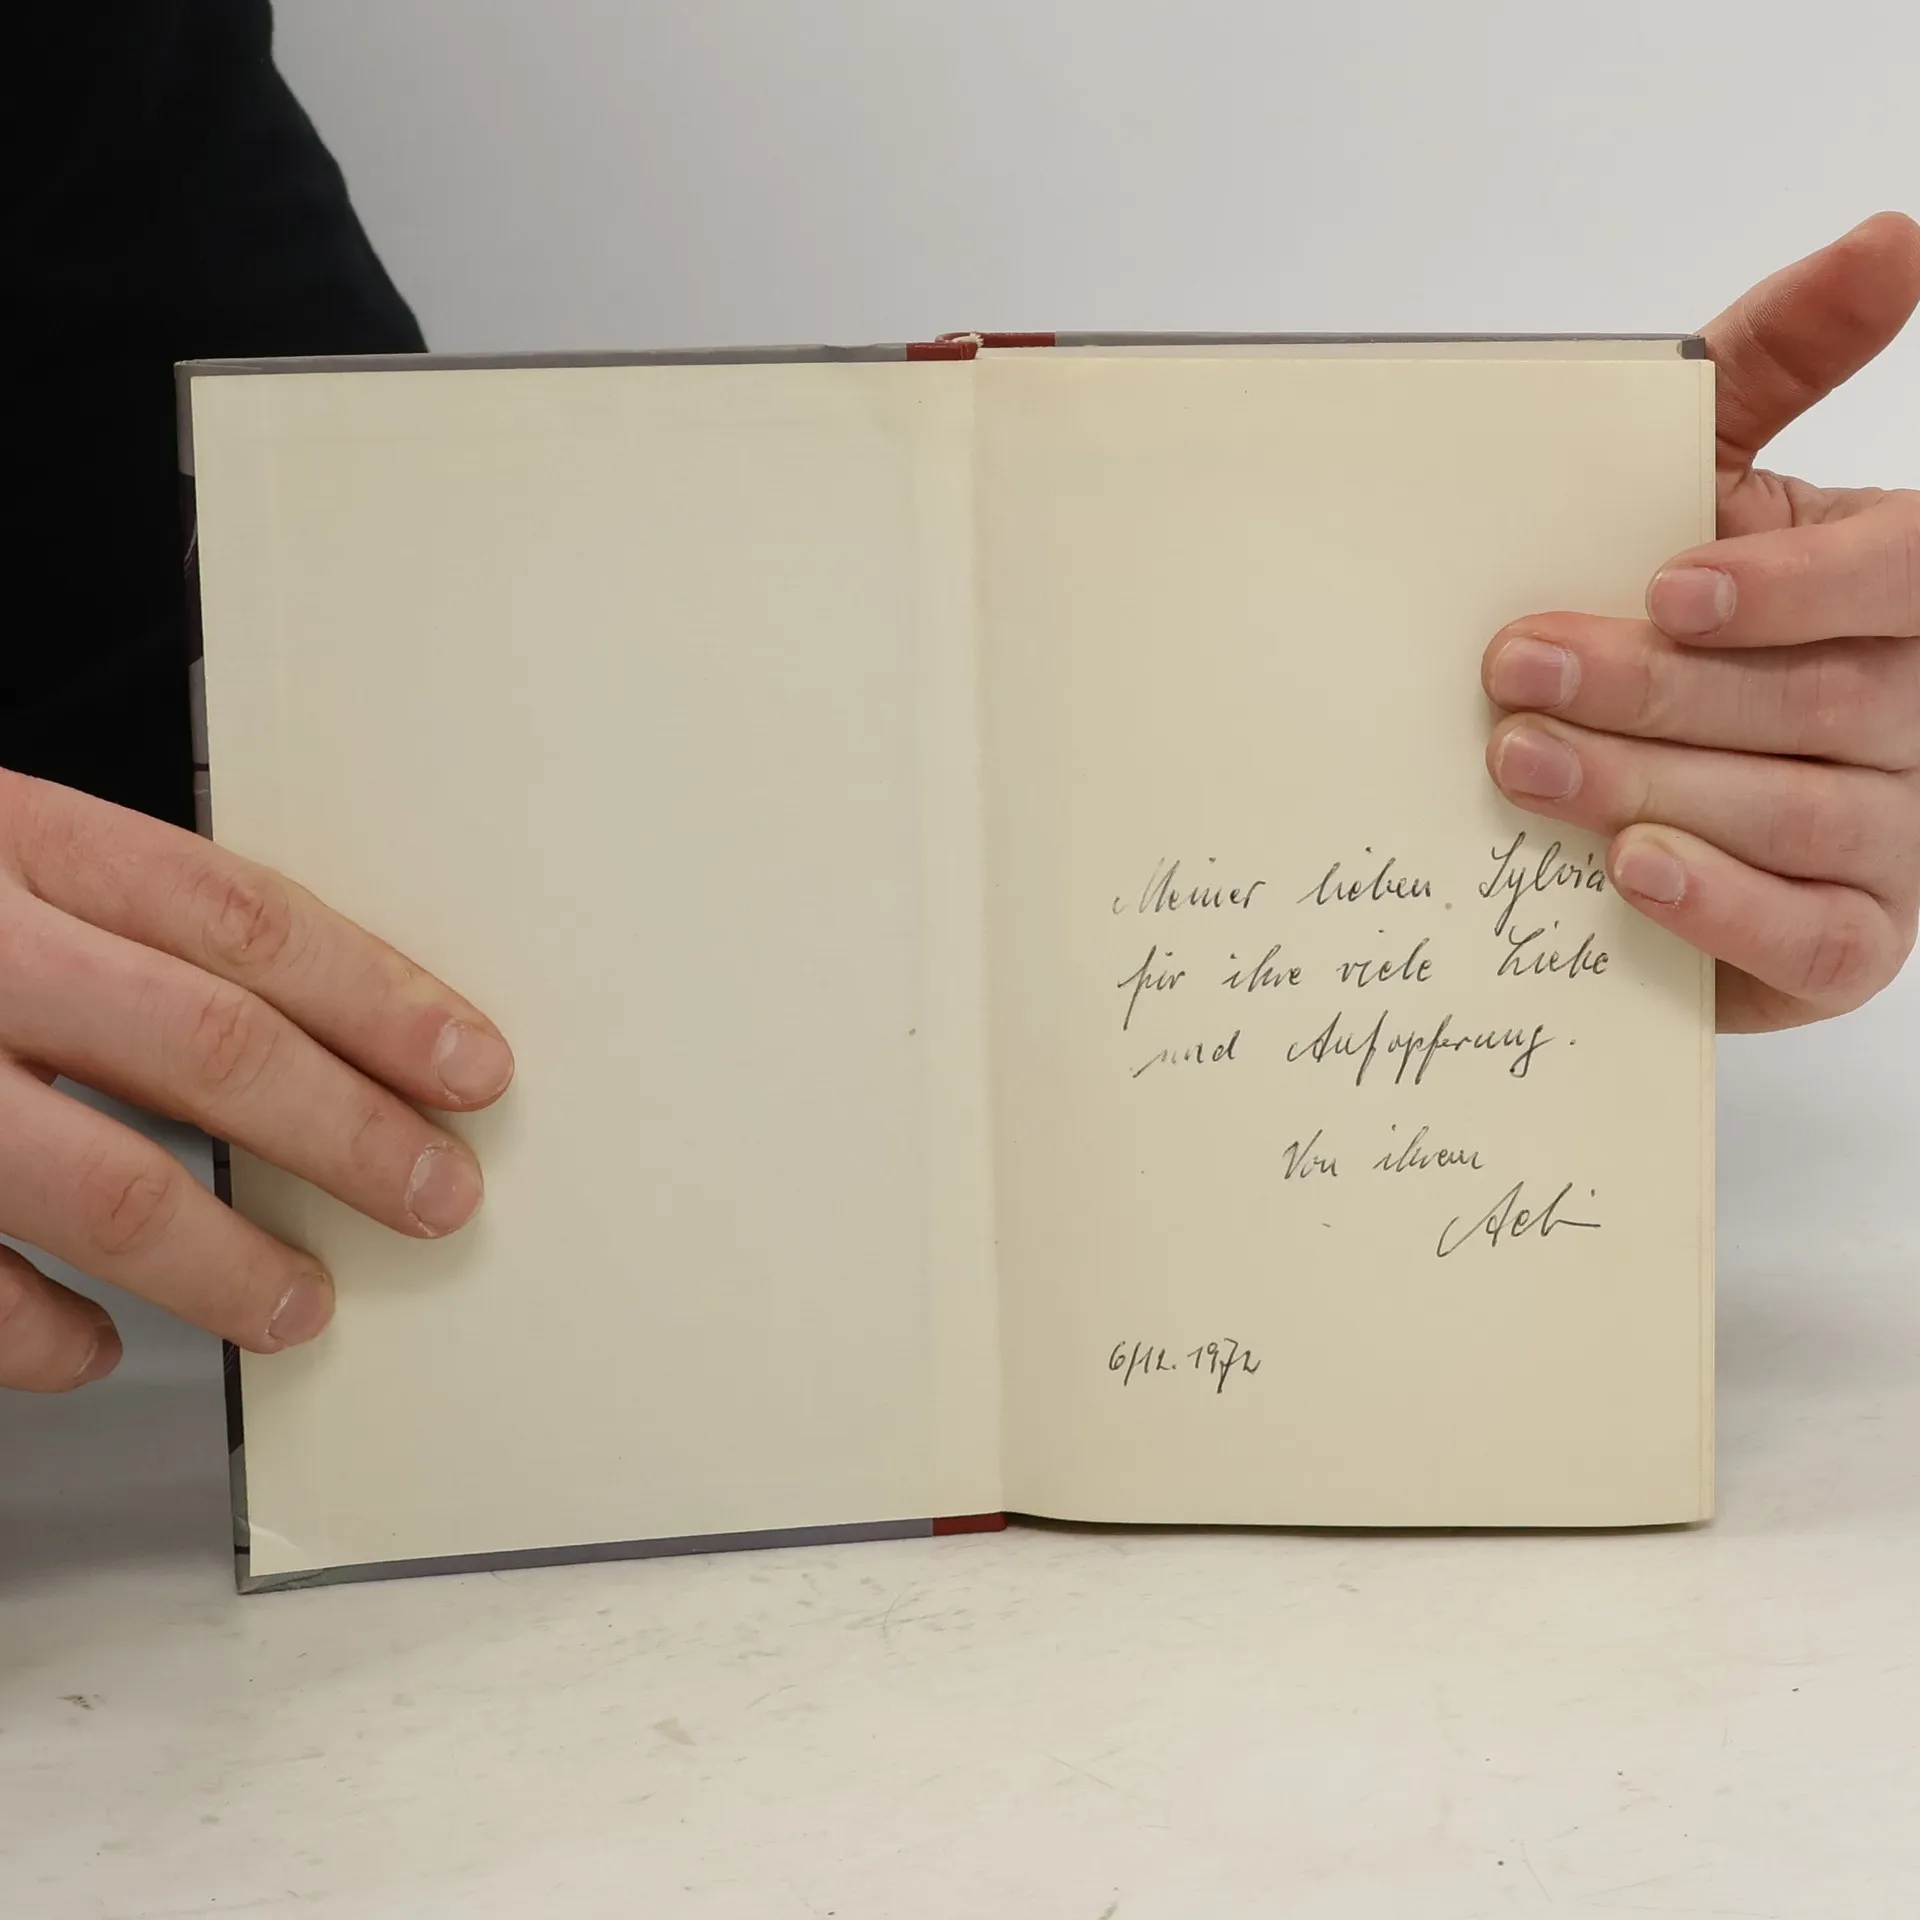 Meiner lieben Sylvia
für ihre viele Liebe
und Aufopferung.
Von ihrem
6/12. 1972